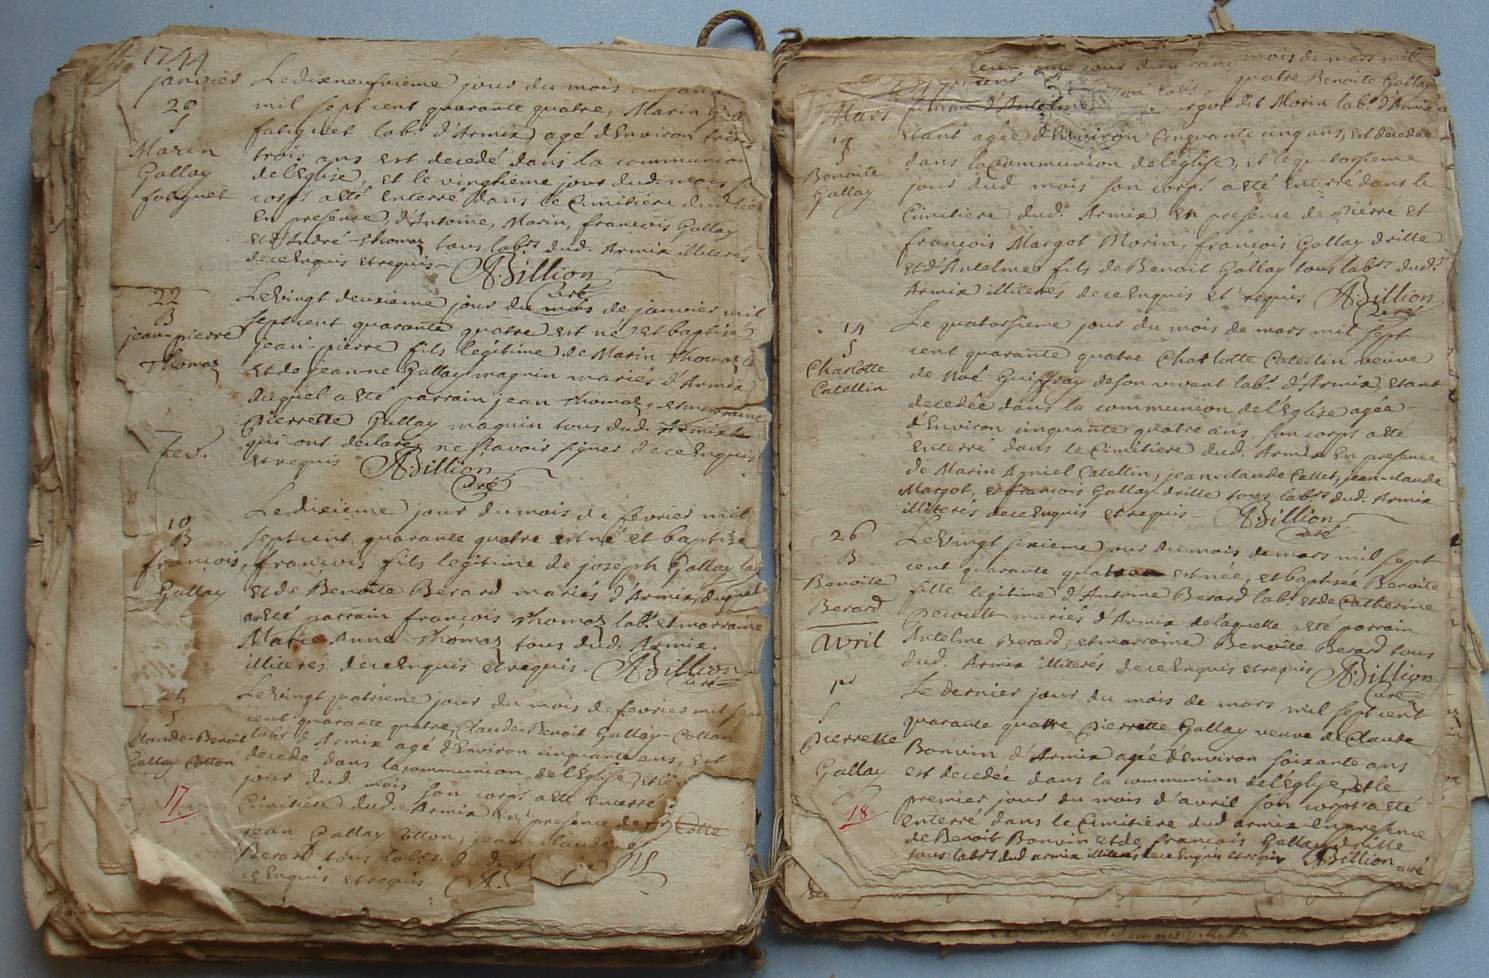 1744
janvier
20
S
Marin
Gallay
fatiguet
Le dixneufvieme jour du mois
mil sept cent quarante quatre, Marin
fatiguet lab.r d'Armix agé d'Environ
trois ans est decedé dans la communion
de l'Eglise, et le vingtième jour dud. mois
corps a été enterré dans le Cimitière dud.
En presence d'Antoine, Marin, françois Gallay
et André Thomaz tous lab.rs dud. Armix illiterés
de ce Enquis et requis Billion
curé
22
B
jean-pierre
Thomaz
Le vingt deuxieme jour du mois de janvier mil
sept cent quarante quatre est né et baptisé
jean pierre fils legitime de Marin Thomaz
et de jeanne Gallay magnin mariés d'Armix
duquel a été parrain jean Thomaz, et marraine
Pierrette Gallay magnin tous dud. Armix
qui ont declaré ne sçavoir signer de ce Enquis
et requis Billion
curé
fev.
10
B
françois
Gallay
Le dixième jour du mois de février mil
sept cent quarante quatre est né et baptisé
françois fils legitime de joseph Gallay
et de Benoite Berard mariés d'Armix, duquel
a été parrain françois Thomaz lab.r et marraine
Marie Anne Thomaz tous dud. Armix
illiterés de ce Enquis et requis. Billion
curé
S
Claude-Benoit
Gallay Cotton
Le vingt quatrieme jour du mois de fevrier mil sept
cent quarante quatre, Claude-Benoit Gallay-Cotton
lab.r d'Armix agé d'Environ cinquante ans, est
decedé dans la communion de l'Eglise, et le
jour dud. mois son corps a été enterré
Cimitière dud. Armix En presence de
jean Gallay Cotton, jean claude
Berard tous lab.rs dud.
ce Enquis et requis
17.
jour mois de mars mil
quatre Benoite Gallay
d'Antelme Margot dit Morin lab.r d'Armix
Mars
S
Benoite
Gallay
étant agée d'Environ Cinquante cinq ans, est decedée
dans la Communion de l'église, et le quatorsieme
jour dud mois son corps a été enterré dans le
Cimitière dud. Armix En presence de pierre et
françois Margot Morin, françois Gallay drille
et d'Antelme fils de Benoit Gallay tous lab.rs dud.t
Armix illiterés de ce Enquis et requis Billion
curé
14
S
Charlotte
Catellin
Le quatorsieme jour du mois de mars mil sept
cent quarante quatre Charlotte Catellin veuve
de Noé Guiffray de son vivant lab.r d'Armix, etant
decedée dans la communion de l'Eglise agée
d'Environ cinquante quatre ans son corps a été
enterré dans le Cimitière dud. Armix En presence
de Marin Agniel Catellin, jean-claude Callet, jean-claude
Margot, et françois Gallay drille tous lab.rs dud. Armix
illiterés de ce Enquis et requis Billion
curé
26
B
Benoite
Berard
Le Vingt sixieme jour du mois de mars mil sept
cent quarante quatre est née, et baptisée Benoite
fille legitime d'Antoine Berard lab.r et de Catherine
mariés d'Armix de laquelle a été parrain
Antelme Berard, et marraine Benoite Berard tous
dud. Armix illiterés de ce Enquis et requis Billion
curé
avril
1.er
S
Pierrette
Gallay
Le dernier jour du mois de mars mil sept cent
quarante quatre Pierrette Gallay veuve de Claude
Bonvin d'Armix agée d'Environ soixante ans
est decedée dans la communion de l'église, et le
premier jour du mois d'avril son corps a été
enterré dans le Cimitière dud armix en presence
de Benoit Bonvin et de françois Gallay drille
tous lab.rs dud armix illiterés de ce Enquis et requis Billion curé
18